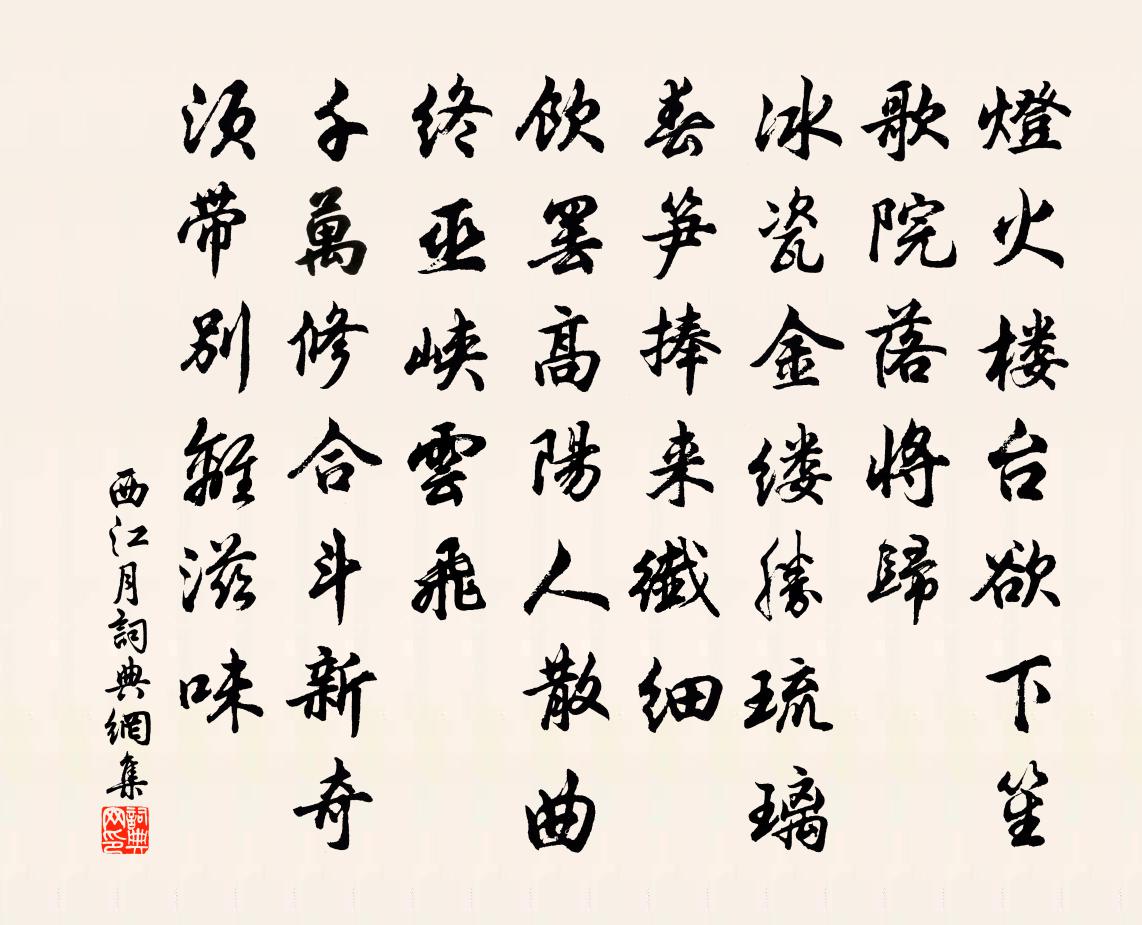 燈火楼台欲下笙
歌院落將歸
冰瓷金缕勝琉璃
春笋捧来纖細
飲罢高陽人散曲
终巫峡雲飛
千萬修合斗新奇
须带别離滋味
西江月詞典網集
詞典网印